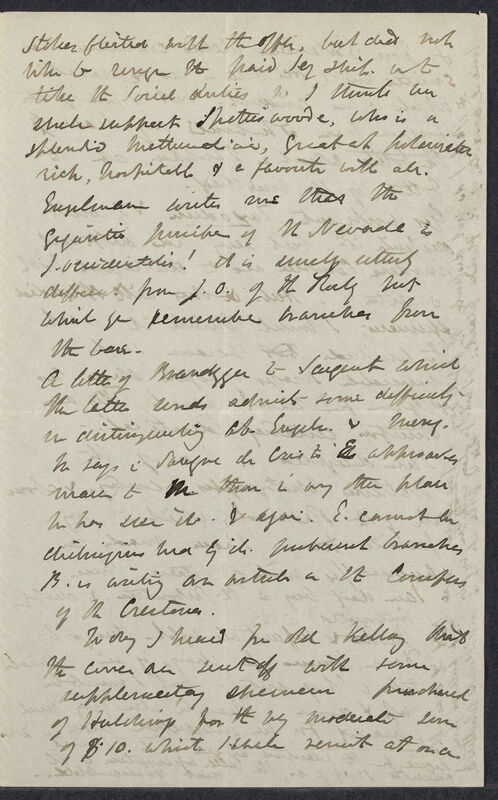 Stokes flirted with the offer, but did not
like to resign the paid Secship. not
like the Social duties & I think we
shall support Spottiswoode, who is a
splendid Mathematician, great at polarization
rich, hospitable & a favorite with all.
Engelman writes me that the
gigantic Juniper of the Nevada is
J. occidentalis! it is surely utterly
different from J.O. of the Rocky Mts
which you remember branches from
the base.
A letter of Brandegee to Sargent which
the latter sends admits some difficulty
in distinguishing Ab. Engel. & Menz.
he says in Sangre de Cristo E approaches
more to M than in any other place
he has seen it. & again. E. cannot be
distinguished by its pubescent branches
B. is writing an article on the Conifers
of the Crestones.
Today I heard from old Kellogg that
the cones are sent off with some
supplementary specimens purchased
of Hutchings for the very moderate sum
of $10. which I shall remit at once